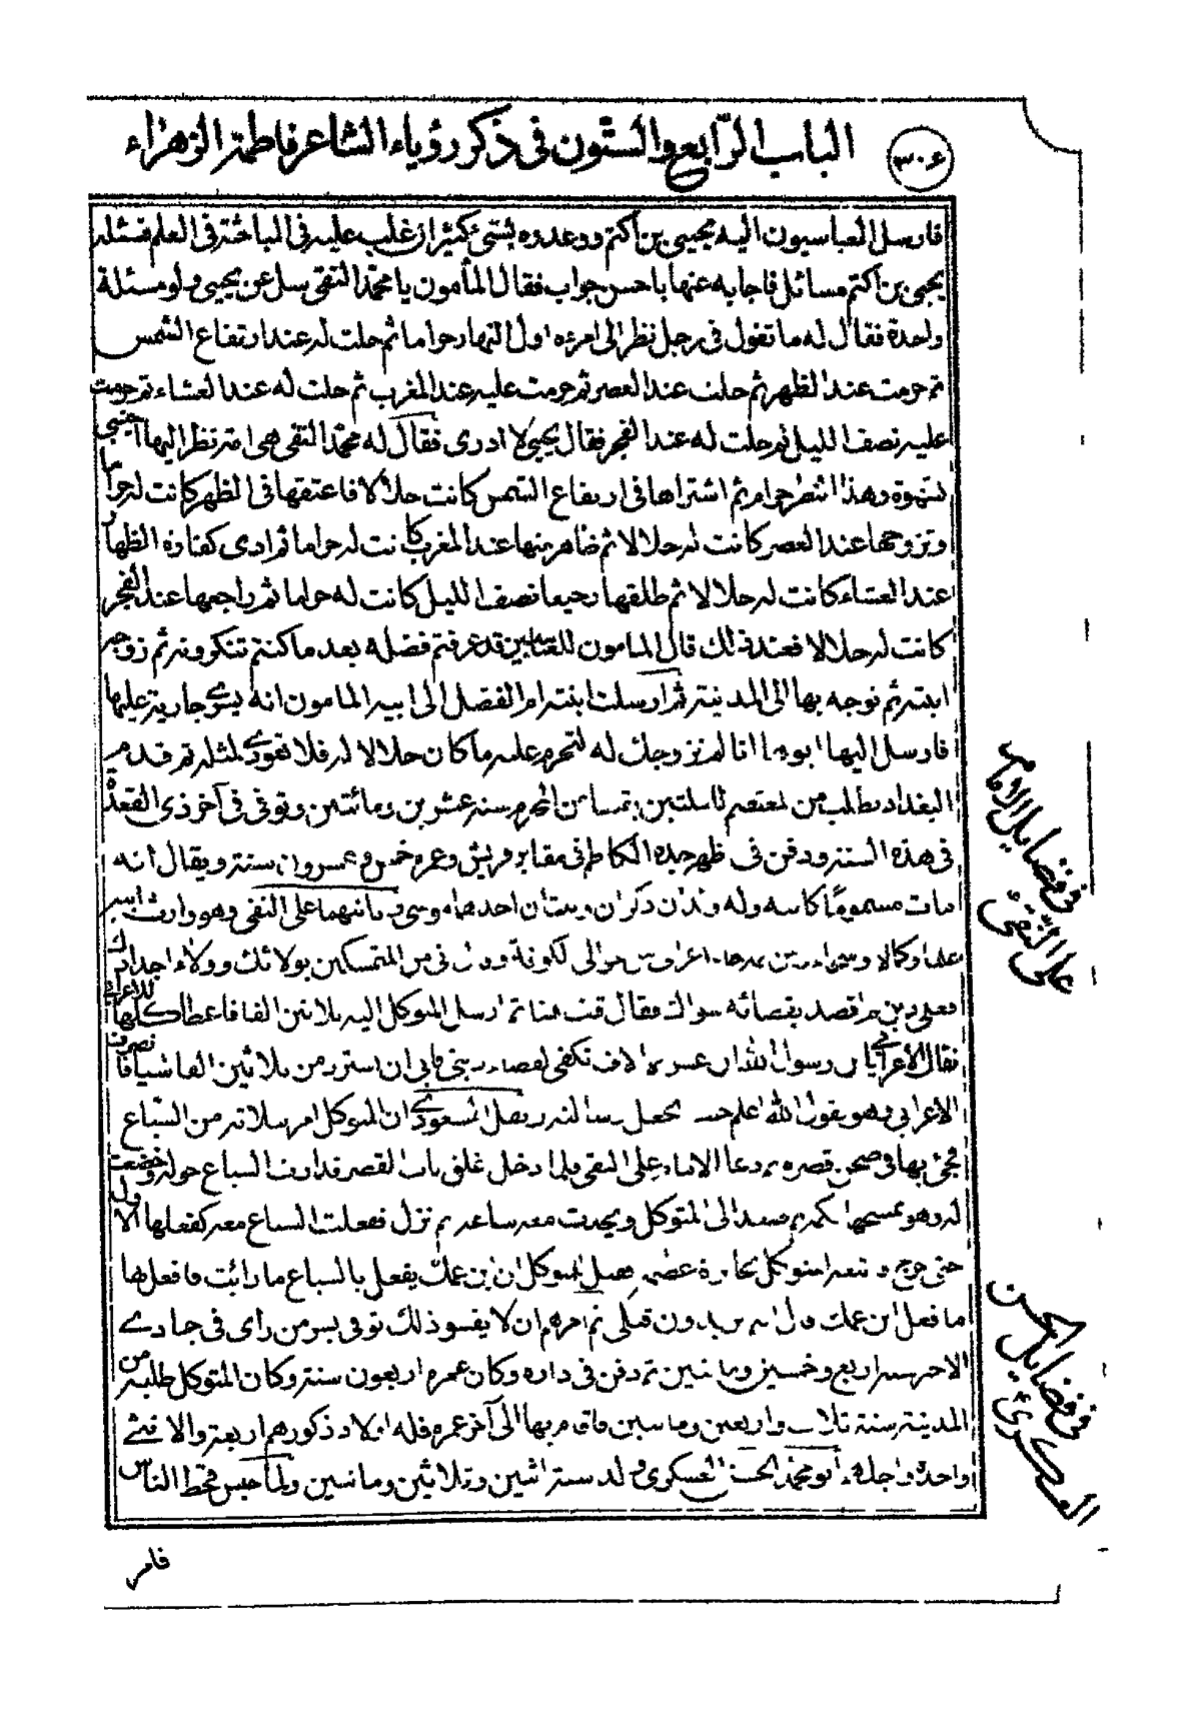 ٣٠٦
الباب الرّابع والستّون فى ذكر رؤياء الشاعر فاطمة الزهراء
فارسل العباسيون اليه يحيى بن اكثم ووعدوه بشئ كثير ان غلب عليه فى المباحثة فى العلم فسئله
يحيى بن اكثم مسائل فاجابه عنها باحسن جواب فقال المأمون يا محمد التقى سل عن يحيى ولو مسئلة
واحدة فقال له ما تقول فى رجل نظر الى امرءه اول النهار حراما ثم حلت له عند ارتفاع الشمس
ثم حرمت عند الظهر ثم حلت عند العصر ثم حرمت عليه عند المغرب ثم حلت له عند العشاء ثم حرمت
عليه نصف الليل ثم حلت له عند الفجر فقال يحيى لا ادرى فقال له محمد التقى هى امة نظر اليها اجنبى
بشهوة وهذا النظر حرام ثم اشتراها فى ارتفاع الشمس كانت حلالا فاعتقها فى الظهر كانت له حراما
وتزوجها عند العصر كانت له حلالا ثم ظاهر منها عند المغرب كانت له حراما ثم ادى كفارة الظهار
عند العشاء كانت له حلالا ثم طلقها رجعيا نصف الليل كانت له حراما ثم راجعها عند الفجر
كانت له حلالا فعند ذلك قال المامون للعباسيين قد عرفتم فضله بعد ما كنتم تنكرونه ثم زوجه
ابنته ثم توجه بها الى المدينة ثم ارسلت ابنته ام الفضل الى ابيه المامون انه يسرى جارية عليها
فارسل اليها ابوها انا لم نزوجك له لنحرم عليه ما كان حلالا له فلا تعودى لمثله ثم قدم
البغداد بطلب من المعتصم لليلتين بقيتا من المحرم سنة عشرين ومائتين وتوفى فى آخر ذى القعدة
فى هذه السنة ودفن فى ظهر جده الكاظم فى مقابر قريش وعمره خمس وعشرون سنة ويقال انه
مات مسموما كابيه وله ولدان ذكران وبنتان احدهما وسى بينهما على النقى وهو وارث ابيه
علما وكمالا اعرابى الكوفة فى من المتمسكين بولائك وولاء اجدادك
فقال قف هنا ثم ارسل المتوكل اليه ثلاثين الفا فاعطا كلها للاعرابى
فقال الاعرابى يابن رسول الله ان عشرة الاف تكفى لقضاء دينى فابى ان استرد من ثلاثين الفا شيا فانصرف
الاعرابى وهو يقول الله اعلم حيث يجعل رسالته نقل المسعودى ان المتوكل امر بثلاثة من السباع
فجئ بها فى صحن قصره ثم دعا الامام على النقى فلما دخل غلق باب القصر فدارت السباع حوله وخضعت
له وهو يمسحها بكمه ثم صعد الى المتوكل ويحدث معه ساعة ثم نزل ففعلت السباع معه كفعلها الاول
حتى خرج عظيمة فقيل للمتوكل ان ابن عمك يفعل بالسباع ما رائت فافعل بها
ما فعل ابن عمك قال انتم تريدون قتلى ثم امرهم ان لا يفسو ذلك توفى بسر من راى فى جمادى
الاخر سنة اربع وخمسين ومائتين ودفن فى داره وكان عمره اربعون سنة وكان المتوكل طلبه من
المدينة سنة ثلاث واربعين ومائتين فاقام بها الى آخر عمره فله اولاد ذكورهم اربعة والانثى
واحدة واجلهم ابو محمد الحسن العسكرى ولد سنة اثنين وثلاثين ومائتين ولما حبس قحط الناس
فى فضايل الامام
على النقى
فى فضايل الحسن
العسكرى
فامر